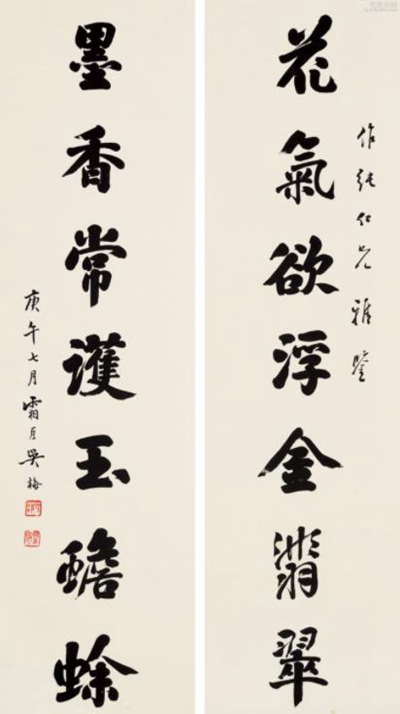 作純仁兄雅鑒
花氣欲浮金翡翠
墨香常護玉蟾蜍
庚午七月霜厓吳梅